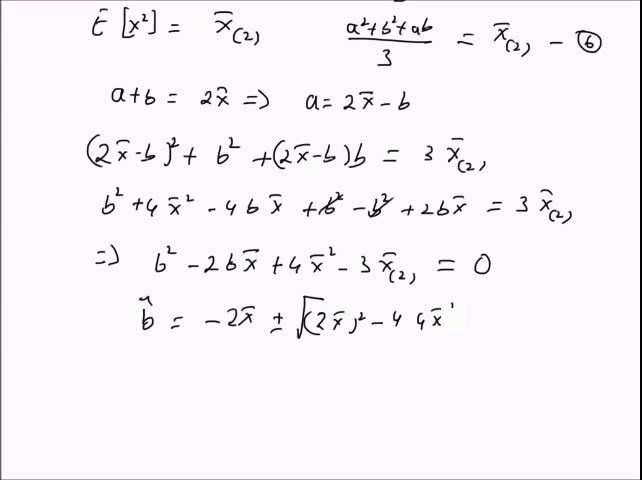 E [x²] = x̄₍₂₎ (a²+b²+ab)/3 = x̄₍₂₎ – ⑥
a+b = 2x̄ => a = 2x̄ – b
(2x̄-b)² + b² + (2x̄-b)b = 3 x̄₍₂₎
b² + 4x̄² - 4bx̄ + b² - b² + 2bx̄ = 3 x̄₍₂₎
=> b² - 2bx̄ + 4x̄² - 3x̄₍₂₎ = 0
b̂ = -2x̄ ± √(2x̄)² - 4 4x̄²